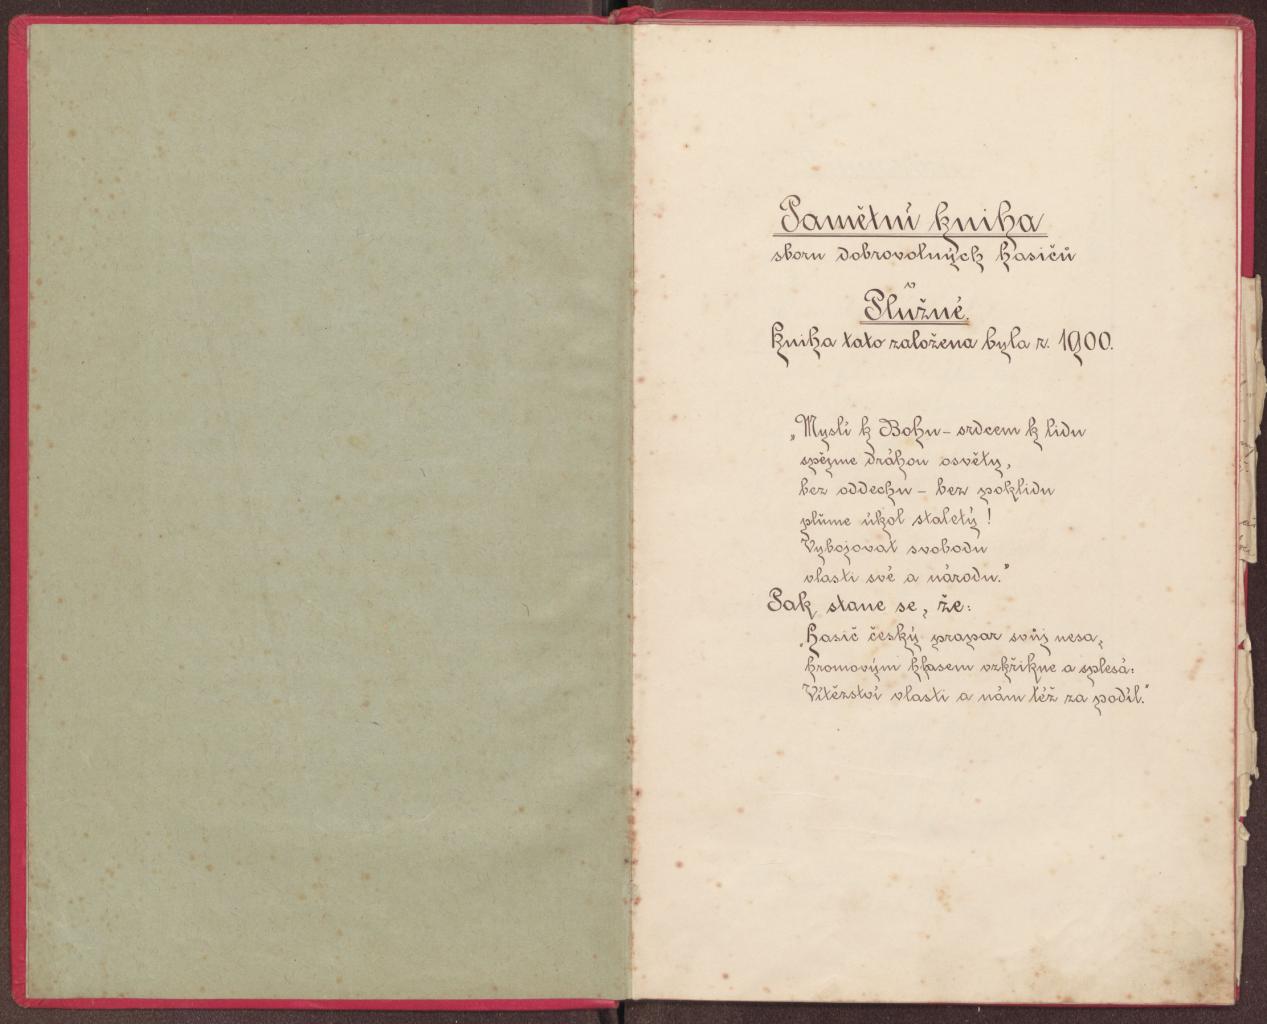 Pamětní kniha
sboru dobrovolných hasičů
v
Plužné.
Kniha tato založena byla r. 1900.
„Myslí k Bohu – srdcem k lidu
spějme dráhou osvěty,
bez oddechu – bez poklidu
plňme úkol staletý!
Vybojovat svobodu
vlasti své a národu."
Pak stane se, že:
„Hasič český prapor svůj nesa,
hromovým hlasem vzkřikne a splesá:
Vítězství vlasti a nám též za podíl."